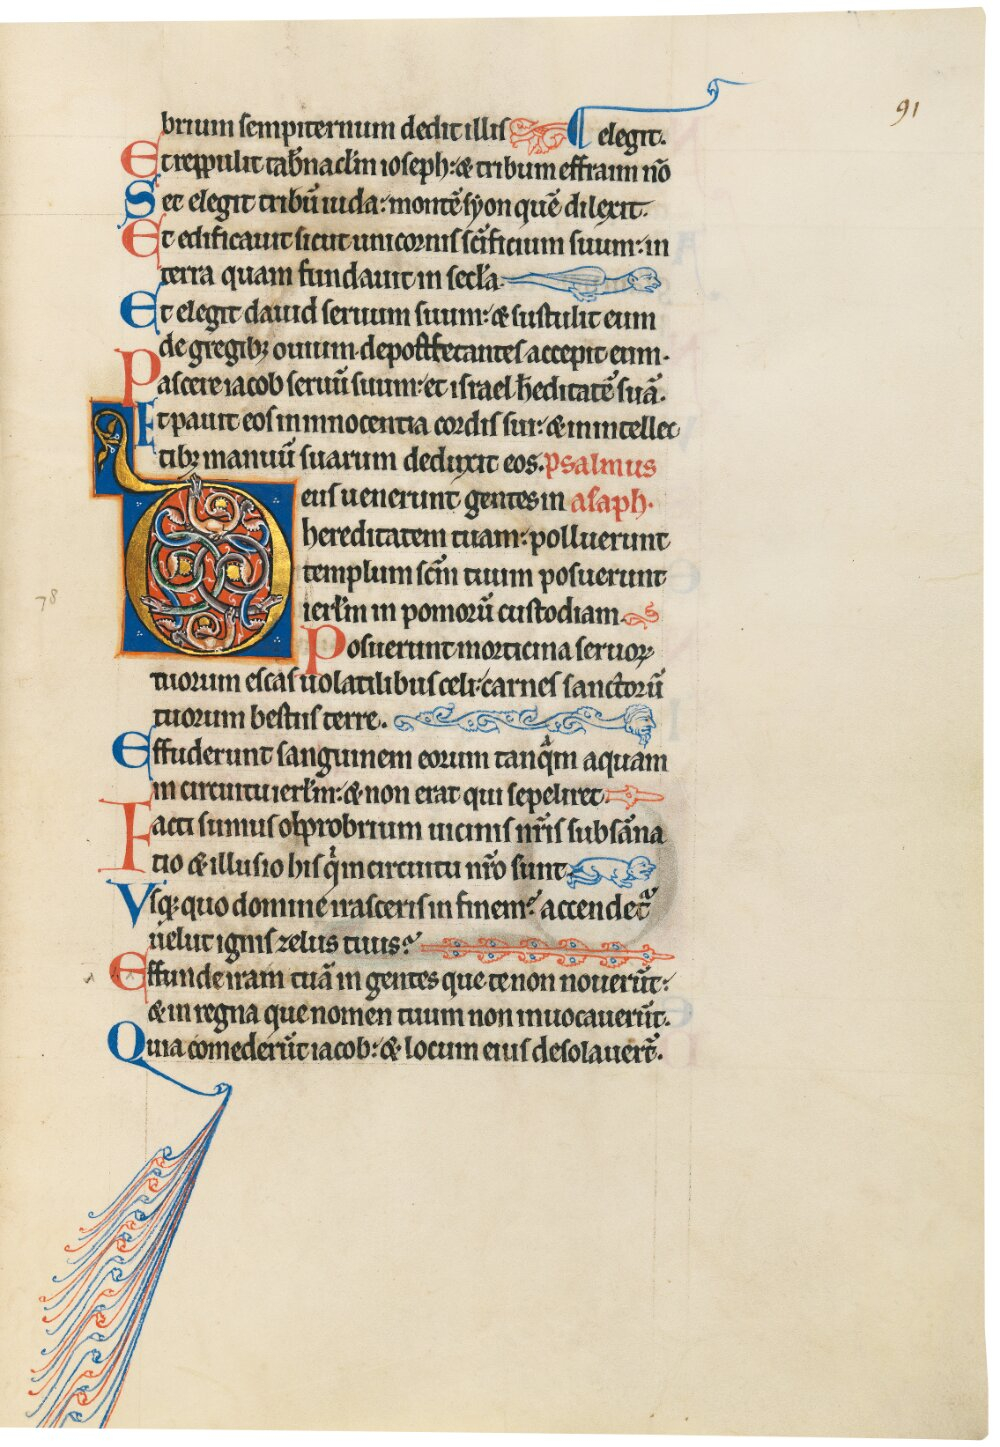 91
brium sempiternum dedit illis ¶ elegit.
Et reppulit tab̄nacl̄m ioseph: & tribum effraim nō
Set elegit tribū iuda: montē syon quē dilexit.
Et edificauit sicut unicornis sc̄ificium suum: in
terra quam fundauit in secl̄a.
Et elegit dauid seruum suum: & sustulit eum
de gregibꝫ ouium. de post fetantes accepit eum.
Pascere iacob seruū suum: et israel h̄editatē suā.
Et pauit eos in innocentia cordis sui: & in intellec
tibꝫ manuū suarum deduxit eos. psalmus
Deus uenerunt gentes in asaph.
hereditatem tuam: polluerunt
templum sc̄m tuum posuerunt
ierl̄m in pomorū custodiam.
78
Posuerunt morticina seruoꝝ
tuorum escas uolatilibus celi: carnes sanctorū
tuorum bestiis terre.
Effuderunt sanguinem eorum tanq̄m aquam
in circuitu ierl̄m: & non erat qui sepeliret
Facti sumus obprobrium uicinis nr̄is subsāna
tio & illusio his q̇ in circuitu nr̄o sunt
Vsqꝫ quo domine irasceris in finem? accendet᷑
uelut ignis zelus tuus?
Effunde iram tuā in gentes que te non nouerūt:
& in regna que nomen tuum non inuocauerūt.
Quia comederūt iacob: & locum eius desolauer̄t.